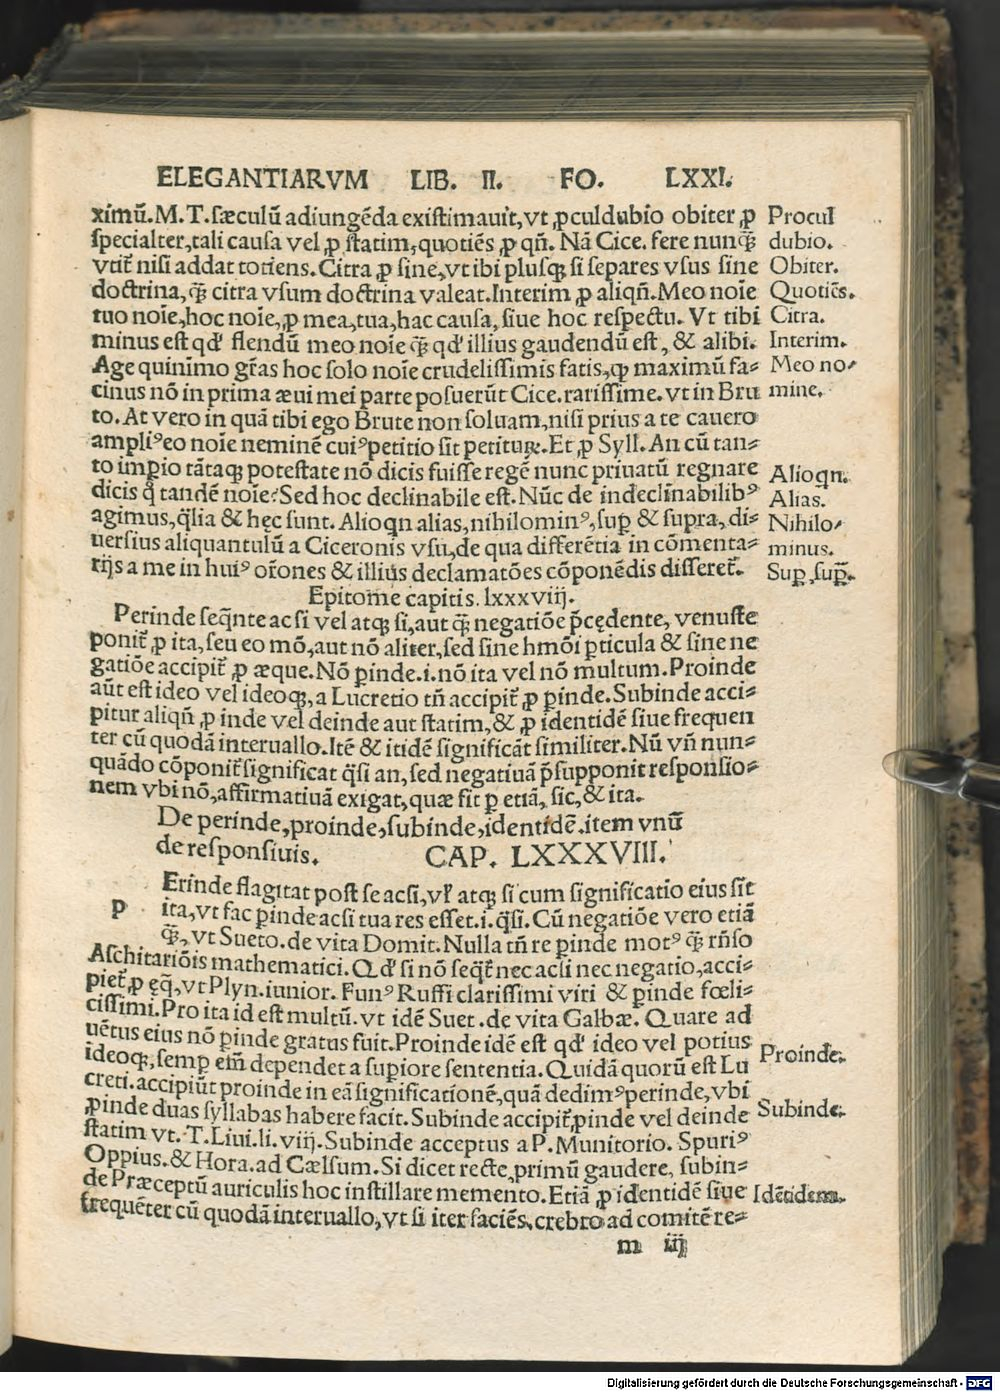 ELEGANTIARVM LIB. II. FO. LXXI.
ximũ.M.T.sæculũ adiungẽda existimauit,vt ꝓculdubio obiter,ꝓ
specialter,tali causa vel ꝓ statim,quotiẽs ꝓ qñ. Nã Cice. fere nunqᷓꝫ
vtit᷑ nisi addat totiens.Citra ꝓ sine,vt ibi plusqꝫ si separes vsus sine
doctrina,qᷓꝫ citra vsum doctrina valeat.Interim ꝓ aliqñ.Meo noīe
tuo noīe,hoc noīe,ꝓ mea,tua,hac causa,siue hoc respectu. Vt tibi
minus est qđ flendũ meo noīe qᷓꝫ qđ illius gaudendũ est, & alibi.
Age quinimo gr̃as hoc solo noīe crudelissimis fatis,ꝙ maximũ fa⸗
cinus nõ in prima æui mei parte posuerũt Cice.rarissime.vt in Bru
to. At vero in quã tibi ego Brute non soluam,nisi prius a te cauero
ampliꝰ eo noīe neminẽ cuiꝰ petitio sit petiturꝝ.Et ꝓ Syll. An cũ tan⸗
to impio tãtaqꝫ potestate nõ dicis fuisse regẽ nunc priuatũ regnare
dicis q̃ tandẽ noīe?Sed hoc declinabile est.Nũc de indeclinabilibꝰ
agimus,q̃lia & hęc sunt. Alioqn alias,nihilominꝰ,sup̱ & supra, di⸗
uersius aliquantulũ a Ciceronis vsu,de qua differẽtia in cõmenta⸗
rijs a me in huiꝰ or̃ones & illius declamatões cõponẽdis differet᷑.
Epitome capitis. lxxxviij.
Perinde seq̃nte ac si vel atqꝫ si,aut qᷓꝫ negatiõe p̃cędente, venuste
ponit᷑ ꝓ ita,seu eo mõ,aut nõ aliter,sed sine hmõi ꝑticula & sine ne
gatiõe accipit᷑ ꝓ æque.Nõ ꝑinde.i.nõ ita vel nõ multum.Proinde
aũt est ideo vel ideoqꝫ,a Lucretio tñ accipit᷑ ꝓ ꝑinde.Subinde acci⸗
pitur aliqñ ꝓ inde vel deinde aut statim,& ꝓ identidẽ siue frequen
ter cũ quodã interuallo.Itẽ & itidẽ significãt similiter.Nũ vñ nun⸗
quãdo cõponit᷑ significat q̃si an,sed negatiuã p̃supponit responsio⸗
nem vbi nõ,affirmatiuã exigat,quæ fit ꝑ etiã, sic,& ita.
De perinde,proinde,subinde,identidẽ.item vnũ
de responsiuis. CAP. LXXXVIII.
p Erinde flagitat post se acsi,vl̕ atqꝫ si cum significatio eius sit
ita,vt fac ꝑinde acsi tua res esset.i.q̃si. Cũ negatiõe vero etiã
qᷓꝫ, vt Sueto.de vita Domit.Nulla tñ re ꝑinde motꝰ qᷓꝫ rñso
Aschitariõis mathematici.Qđ si nõ seqt᷑ nec acsi nec negatio,acci⸗
piet᷑ ꝓ ęq̃,vt Plyn.iunior. Funꝰ Ruffi clarissimi viri & ꝑinde fœli⸗
cissimi.Pro ita id est multũ.vt idẽ Suet.de vita Galbæ. Quare ad
uẽtus eius nõ ꝑinde gratus fuit.Proinde idẽ est qđ ideo vel potius
ideoqꝫ,semp̱ em̃ dependet a supiore sententia.Quidã quorũ est Lu
creti.accipiũt proinde in eã significationẽ,quã dedimꝰ perinde,vbi
ꝓinde duas syllabas habere facit.Subinde accipit᷑,pinde vel deinde
statim vt. T.Liui.li.viij.Subinde acceptus a P.Munitorio. Spuriꝰ
Oppius.& Hora.ad Cælsum.Si dicet recte,primũ gaudere, subin⸗
de Præceptũ auriculis hoc instillare memento.Etiã ꝓ identidẽ siue
frequẽter cũ quodã interuallo,vt si iter faciẽs,crebro ad comitẽ re⸗
m iij
Procul
dubio.
Obiter.
Quotiẽs.
Citra.
Interim.
Meo no⸗
mine.
Alioqn.
Alias.
Nihilo⸗
minus.
Sup̱,sup̃.
Proinde.
Subinde.
Idẽtidem.
Digitalisierung gefördert durch die Deutsche Forschungsgemeinschaft - DFG